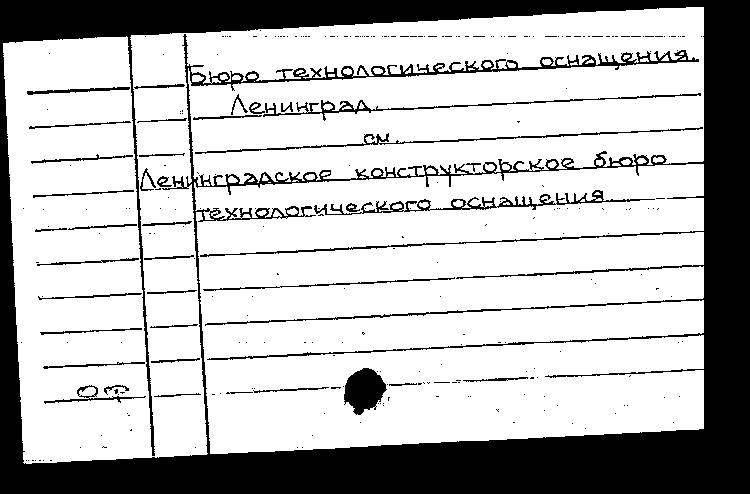 Бюро технологического оснащения.
Ленинград.
см.
Ленинградское конструкторское бюро
технологического оснащения